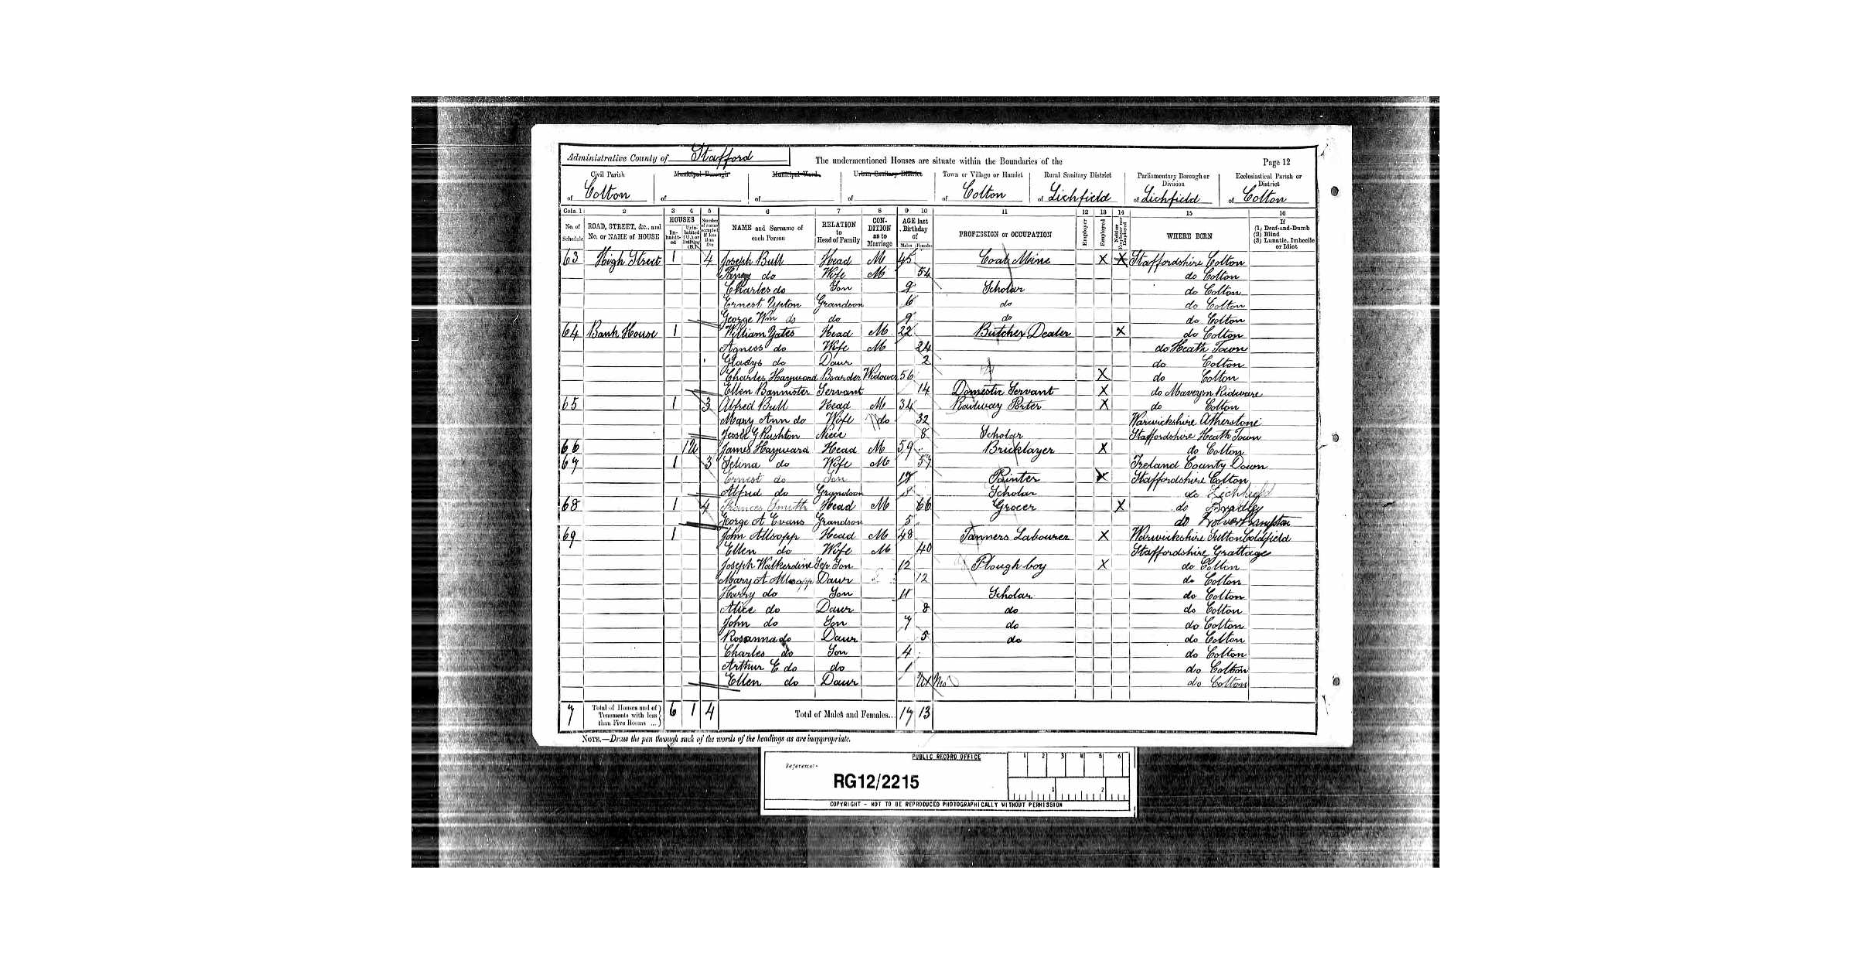 Administrative County of Stafford The undermentioned Houses are situate within the Boundaries of the Page 12
Civil Parish Municipal Borough Municipal Ward Urban Sanitary District Town or Village or Hamlet Rural Sanitary District Parliamentary Borough or Division Ecclesiastical Parish or District
of Colton of of of of Colton of Lichfield of Lichfield of Colton
Cols. 1 2 3 4 5 6 7 8 9 10 11 12 13 14 15 16
No. of Schedule ROAD, STREET, &c., and No. or NAME of HOUSE HOUSES NAME and Surname of each Person RELATION to Head of Family CONDITION as to Marriage AGE last Birthday of Males Females PROFESSION or OCCUPATION Employer Employed WHERE BORN If (1) Deaf-and-Dumb (2) Blind (3) Lunatic, Imbecile or Idiot
63 High Street 1 4 Joseph Bull Head M 45 Coal Mine X X Staffordshire Colton
do Wife M 54 do Colton
Charles do Son 9 Scholar do Colton
Ernest Upton Grandson 6 do do Colton
George Wm do do 9 do do Colton
64 Bank House 1 William Yates Head M 22 Butcher Dealer X do Colton
Agness do Wife M 24 do Heath Town
Gladys do Daur 2 do Colton
Charles Hayward Boarder Widower 56 X do Colton
Ellen Bannister Servant 14 Domestic Servant X do Mavesyn Ridware
65 1 3 Alfred Bull Head M 34 Railway Porter X do Colton
Mary Ann do Wife do 32 Warwickshire Atherstone
Rushton Niece 8 Scholar Staffordshire Heath Town
66 1 James Hayward Head M 59 Bricklayer X do Colton
67 1 3 Selina do Wife M 57 Ireland County Down
Ernest do Son Painter X Staffordshire Colton
Alfred do Grandson Scholar do
68 1 4 Frances Smith Head M 66 Grocer X do Bradley
George A Evans Grandson 5 do Wolverhampton
69 1 John Allsopp Head M 48 Tanners Labourer X Warwickshire Suttoncoldfield
Ellen do Wife M 40 Staffordshire Grattage
Joseph Walkerdine Step Son 12 Plough boy X do Colton
Mary A Allsopp Daur 12 do Colton
Harry do Son 11 Scholar do Colton
Alice do Daur 8 do do Colton
John do Son 7 do do Colton
Rosanna do Daur 5 do do Colton
Charles do Son 4 do Colton
Arthur E do do 1 do Colton
Ellen do Daur do Colton
7 Total of Houses and of Tenements with less than Five Rooms 6 1 4 Total of Males and Females... 17 13
NOTE.—Draw the pen through such of the words of the headings as are inappropriate.
PUBLIC RECORD OFFICE
Reference:-
RG12/2215
1 2 3 4 5 6
1 2
COPYRIGHT - NOT TO BE REPRODUCED PHOTOGRAPHICALLY WITHOUT PERMISSION